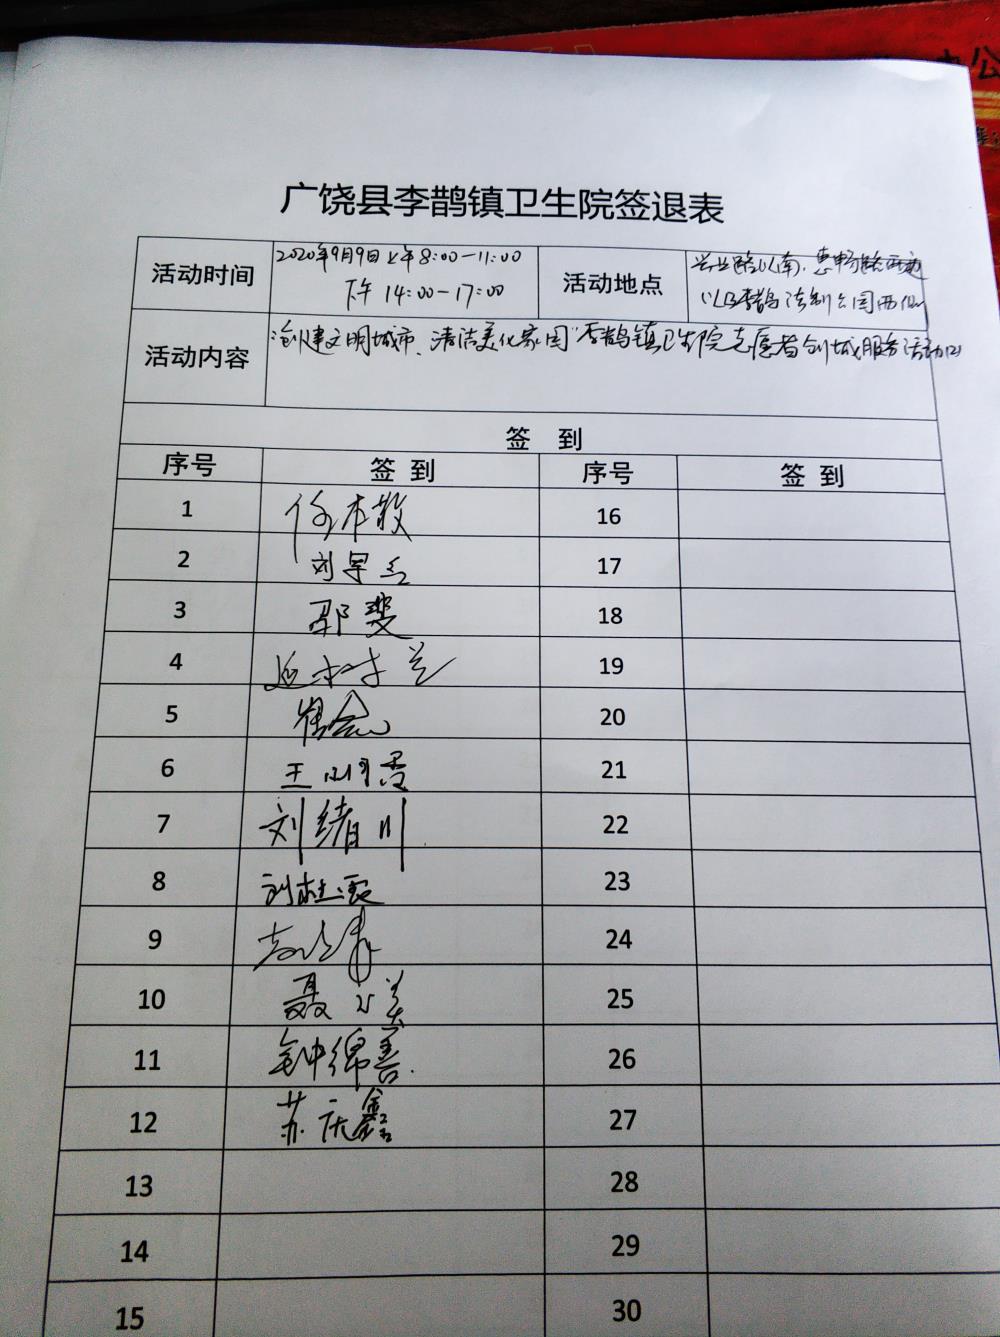 办公
广饶县李鹊镇卫生院签退表
活动时间
2020年9月9日上午8:00-11:00
下午 14:00-17:00
活动地点
兴业路以南、惠畅路西边
以及李鹊法制公园西侧
活动内容
"创建文明城市、清洁美化家园"李鹊镇卫生院志愿者创城服务活动(2)
签 到
序号 签到 序号 签到
1 徐本散 16
2 刘军 17
3 邵斐 18
4 19
5 崔会 20
6 王 霞 21
7 刘绪川 22
8 刘桂霞 23
9 24
10 聂 25
11 钟绵善 26
12 苏庆鑫 27
13 28
14 29
15 30